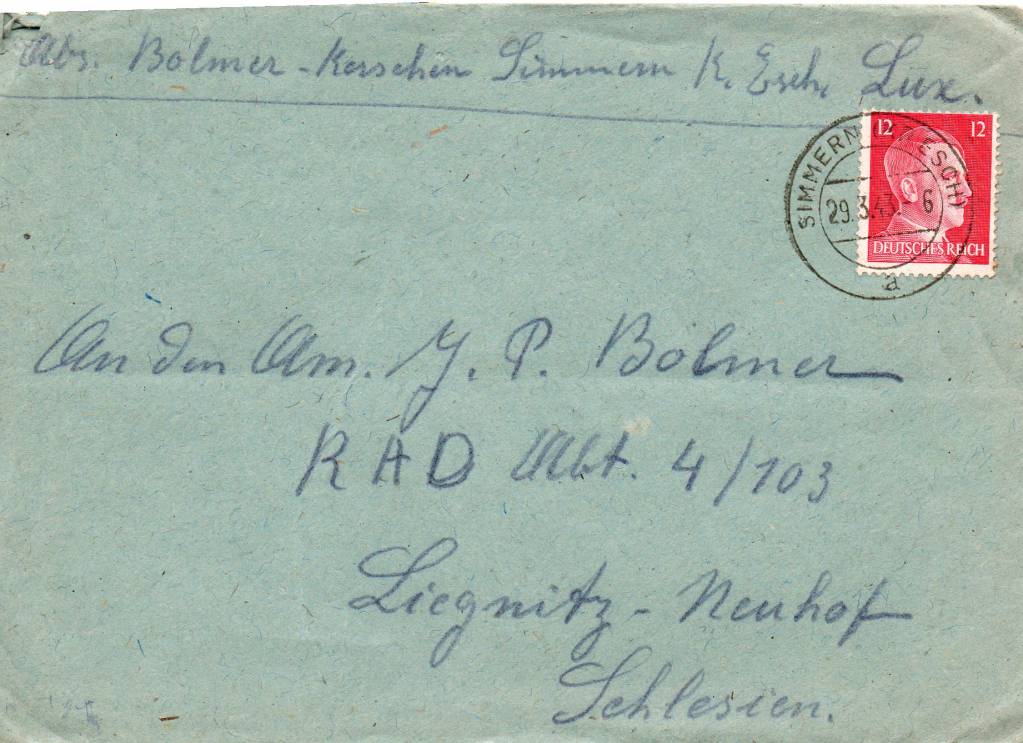 Abs. Bolmer-Kerschen Simmern K. Esch. Lux.
12 12
SIMMERN ESCH)
29.3.43.-6
DEUTSCHES REICH
a
An den Am. J. P. Bolmer
RAD Abt. 4/103
Liegnitz-Neuhof
Schlesien.